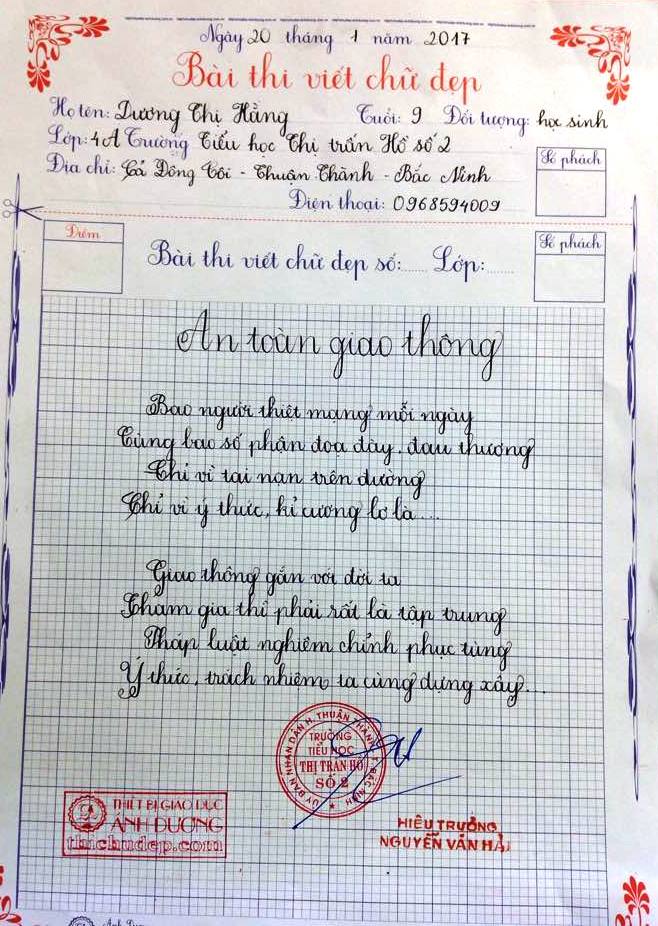 Ngày 20 tháng 1 năm 2017
Bài thi viết chữ đẹp
Họ tên: Dương Thị Hằng Tuổi: 9 Đối tượng: học sinh
Lớp: 4A Trường Tiểu học Thị trấn Hồ số 2
Địa chỉ: Cả Đông Côi - Thuận Thành - Bắc Ninh
Điện thoại: 0968594009
Số phách
Điểm
Bài thi viết chữ đẹp số: Lớp:
Số phách
An toàn giao thông
Bao người thiệt mạng mỗi ngày
Cùng bao số phận đọa đày, đau thương
Chỉ vì tai nạn trên đường
Chỉ vì ý thức, kỉ cương lơ là...
Giao thông gắn với đời ta
Tham gia thì phải rất là tập trung
Pháp luật nghiêm chỉnh phục tùng
Ý thức, trách nhiệm ta cùng dựng xây...
ỦY BAN NHÂN DÂN H. THUẬN THÀNH T. BẮC NINH
TRƯỜNG
TIỂU HỌC
THỊ TRẤN HỒ
SỐ 2
THIẾT BỊ GIÁO DỤC
ÁNH DƯƠNG
thichudep.com
HIỆU TRƯỞNG
NGUYỄN VĂN HẢI